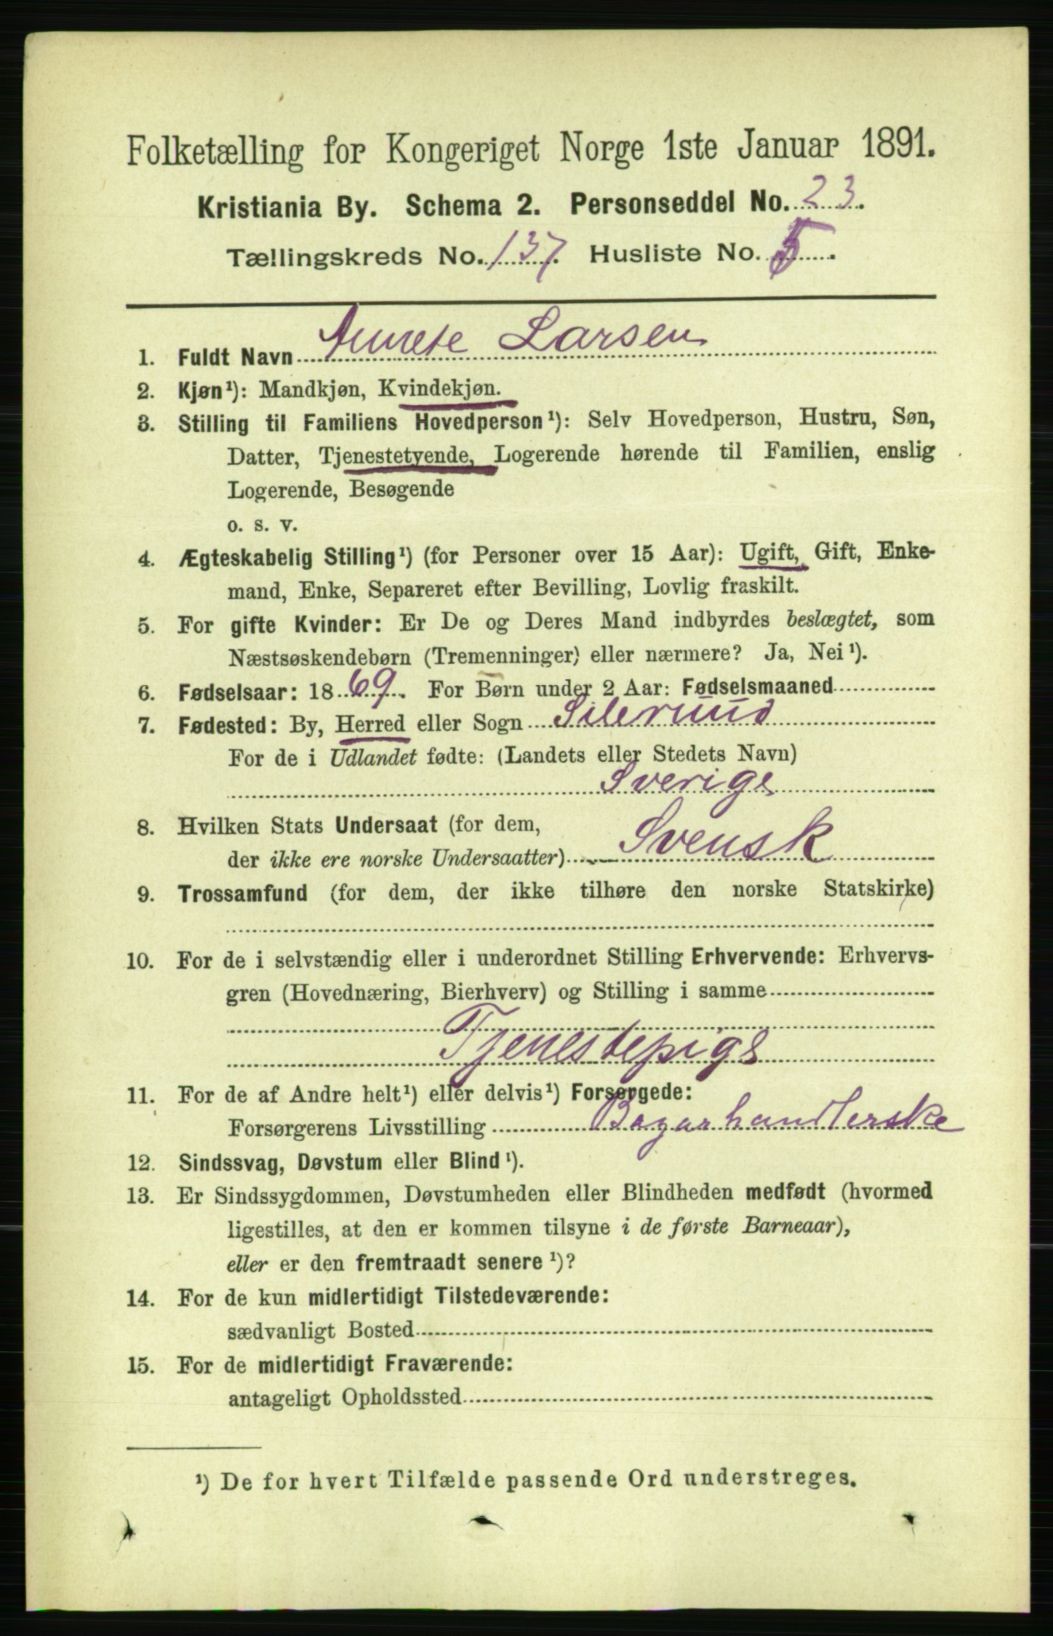 Folketælling for Kongeriget Norge 1ste Januar 1891.
Kristiania By. Schema 2. Personseddel No. 23.
Tællingskreds No. 137. Husliste No. 5.
1. Fuldt Navn Larsen
2. Kjøn¹): Mandkjøn, Kvindekjøn.
3. Stilling til Familiens Hovedperson¹): Selv Hovedperson, Hustru, Søn,
Datter, Tjenestetyende, Logerende hørende til Familien, enslig
Logerende, Besøgende
o. s. v.
4. Ægteskabelig Stilling¹) (for Personer over 15 Aar): Ugift, Gift, Enke-
mand, Enke, Separeret efter Bevilling, Lovlig fraskilt.
5. For gifte Kvinder: Er De og Deres Mand indbyrdes beslægtet, som
Næstsøskendebørn (Tremenninger) eller nærmere? Ja, Nei¹).
6. Fødselsaar: 1869. For Børn under 2 Aar: Fødselsmaaned
7. Fødested: By, Herred eller Sogn
For de i Udlandet fødte: (Landets eller Stedets Navn)
Sverige
8. Hvilken Stats Undersaat (for dem,
der ikke ere norske Undersaatter) Svensk
9. Trossamfund (for dem, der ikke tilhøre den norske Statskirke)
10. For de i selvstændig eller i underordnet Stilling Erhvervende: Erhvervs-
gren (Hovednæring, Bierhverv) og Stilling i samme
Tjenestepige
11. For de af Andre helt¹) eller delvis¹) Forsørgede:
Forsørgerens Livsstilling Bazarhandlerske
12. Sindssvag, Døvstum eller Blind¹).
13. Er Sindssygdommen, Døvstumheden eller Blindheden medfødt (hvormed
ligestilles, at den er kommen tilsyne i de første Barneaar),
eller er den fremtraadt senere¹)?
14. For de kun midlertidigt Tilstedeværende:
sædvanligt Bosted
15. For de midlertidigt Fraværende:
antageligt Opholdssted
¹) De for hvert Tilfælde passende Ord understreges.